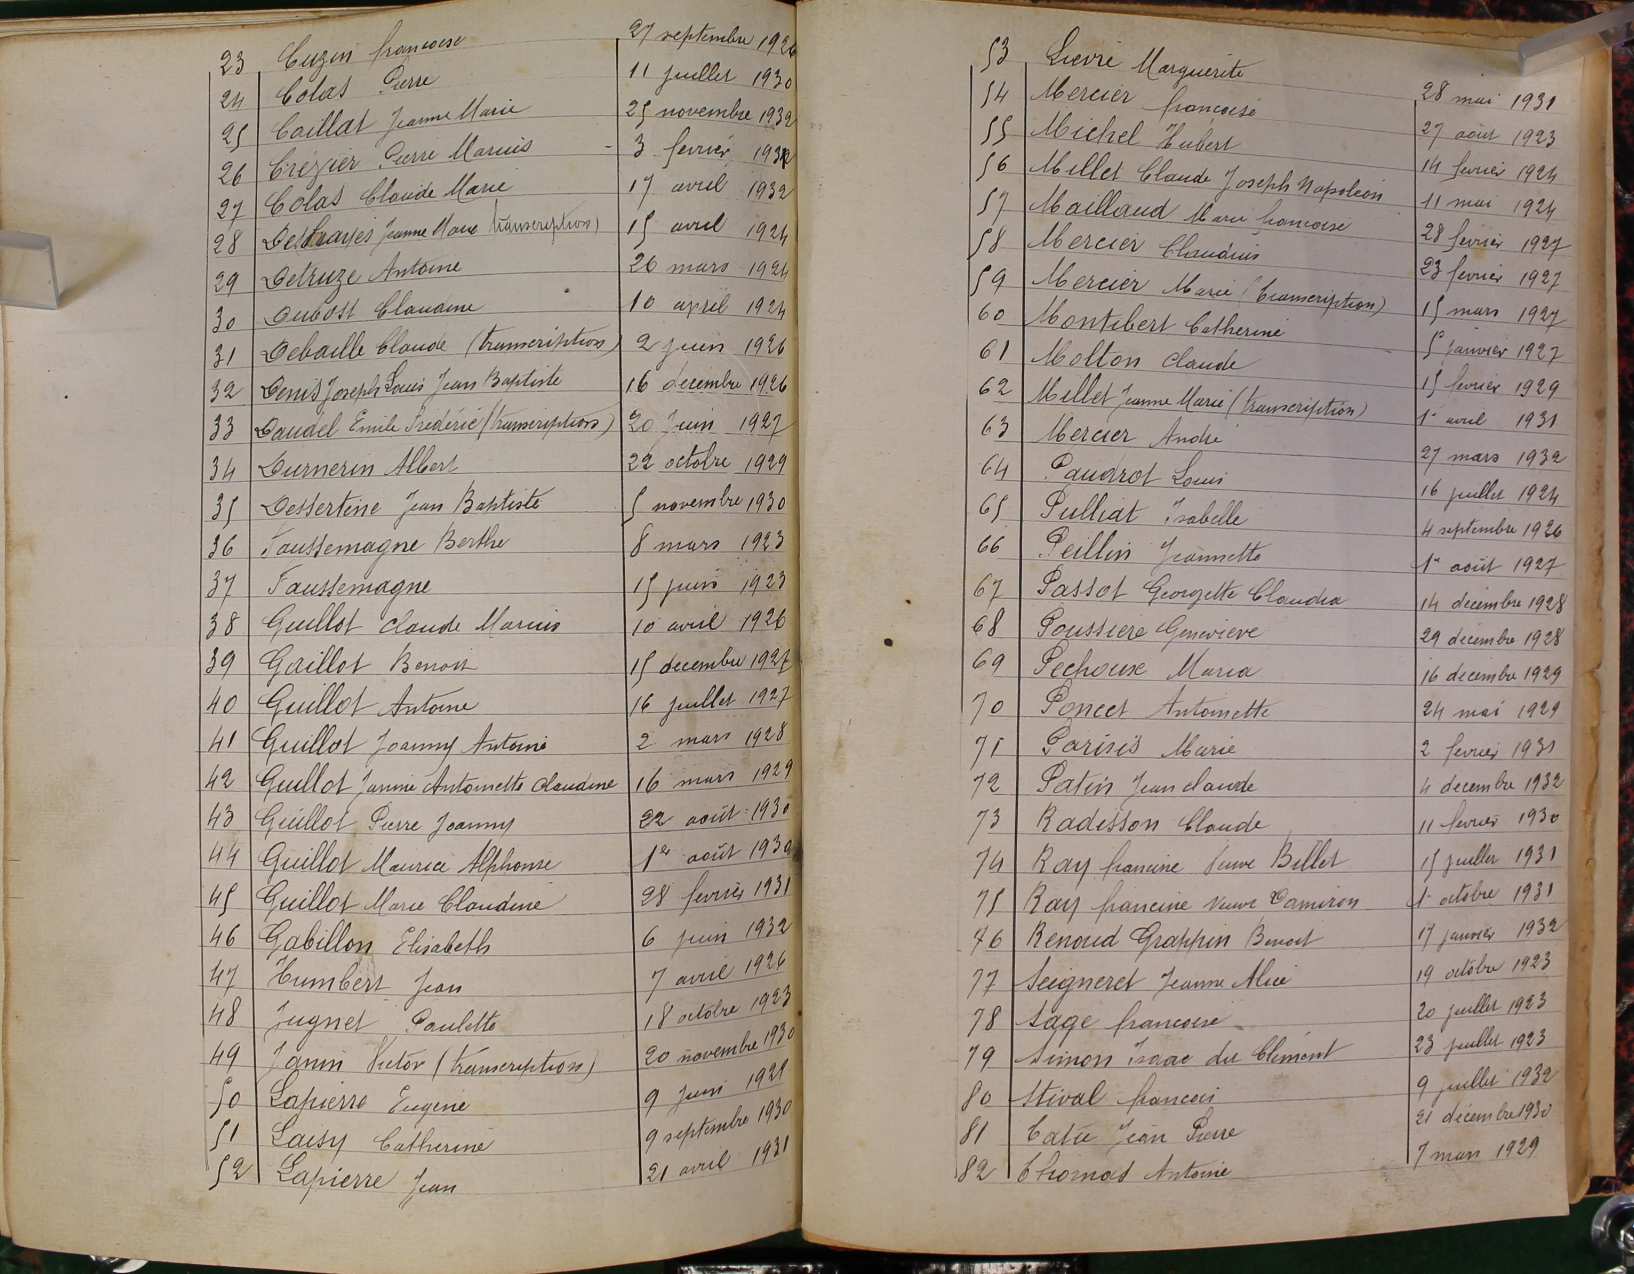 23 Cuzin françoise 27 septembre 1926
24 Colas Pierre 11 juillet 1930
25 Caillat Jeanne Marie 25 novembre 1932
26 Crézier Pierre Marius 3 fevrier 1932
27 Colas Claude Marie 17 avril 1932
28 Desbrayes Jeanne Marie (transcription) 15 avril 1924
29 Detruze Antoine 26 mars 1924
30 Dubost Claudine 10 april 1924
31 Debaille Claude (transcription) 2 juin 1926
32 Denis Joseph Louis Jean Baptiste 16 decembre 1926
33 Daudel Emile Frédéric (transcription) 20 Juin 1927
34 Durnerin Albert 22 octobre 1929
35 Dessertine Jean Baptiste 5 novembre 1930
36 Faussemagne Berthe 8 mars 1923
37 Faussemagne 15 juin 1923
38 Guillot Claude Marius 10 avril 1926
39 Gaillot Benoit 15 decembre 1927
40 Guillot Antoine 16 juillet 1927
41 Guillot Joanny Antoine 2 mars 1928
42 Guillot Jeanne Antoinette Claudine 16 mars 1929
43 Guillot Pierre Joanny 22 août 1930
44 Guillot Maurice Alphonse 1er août 1930
45 Guillot Marie Claudine 28 fevrier 1931
46 Gabillon Elisabeth 6 juin 1932
47 Humbert Jean 7 avril 1926
48 Jugnet Paulette 18 octobre 1923
49 Janin Victor (transcription) 20 novembre 1930
50 Lapierre Eugene 9 Juin 1929
51 Laisy Catherine 9 septembre 1930
52 Lapierre Jean 21 avril 1931
53 Lievre Marguerite 28 mai 1931
54 Mercier françoise 27 août 1923
55 Michel Hubert 14 fevrier 1924
56 Millet Claude Joseph Napoleon 11 mai 1924
57 Maillaud Marie françoise 28 fevrier 1927
58 Mercier Claudius 23 fevrier 1927
59 Mercier Marie (transcription) 15 mars 1927
60 Montibert Catherine 5 janvier 1927
61 Molton Claude 15 fevrier 1929
62 Millet Jeanne Marie (transcription) 1er avril 1931
63 Mercier André 27 mars 1932
64 Paudrot Louis 16 juillet 1924
65 Pulliat Isabelle 4 septembre 1926
66 Peillin Jeannette 1er août 1927
67 Passot Georgette Claudia 14 decembre 1928
68 Poussiere Genevieve 29 decembre 1928
69 Pechoux Maria 16 decembre 1929
70 Poncet Antoinette 24 mai 1929
71 Parisis Marie 2 fevrier 1931
72 Patin Jean claude 4 decembre 1932
73 Radisson Claude 11 fevrier 1930
74 Ray francine Veuve Billet 15 juillet 1931
75 Ray francine Veuve Damiron 1er octobre 1931
76 Renoud Grappin Benoit 17 janvier 1932
77 Seigneret Jeanne Alice 19 octobre 1923
78 Sage françoise 20 juillet 1923
79 Simon Isaac dit Clément 23 juillet 1923
80 Stival francois 9 juillet 1932
81 Catie Jean Pierre 21 décembre 1930
82 Thomas Antoine 7 mars 1929